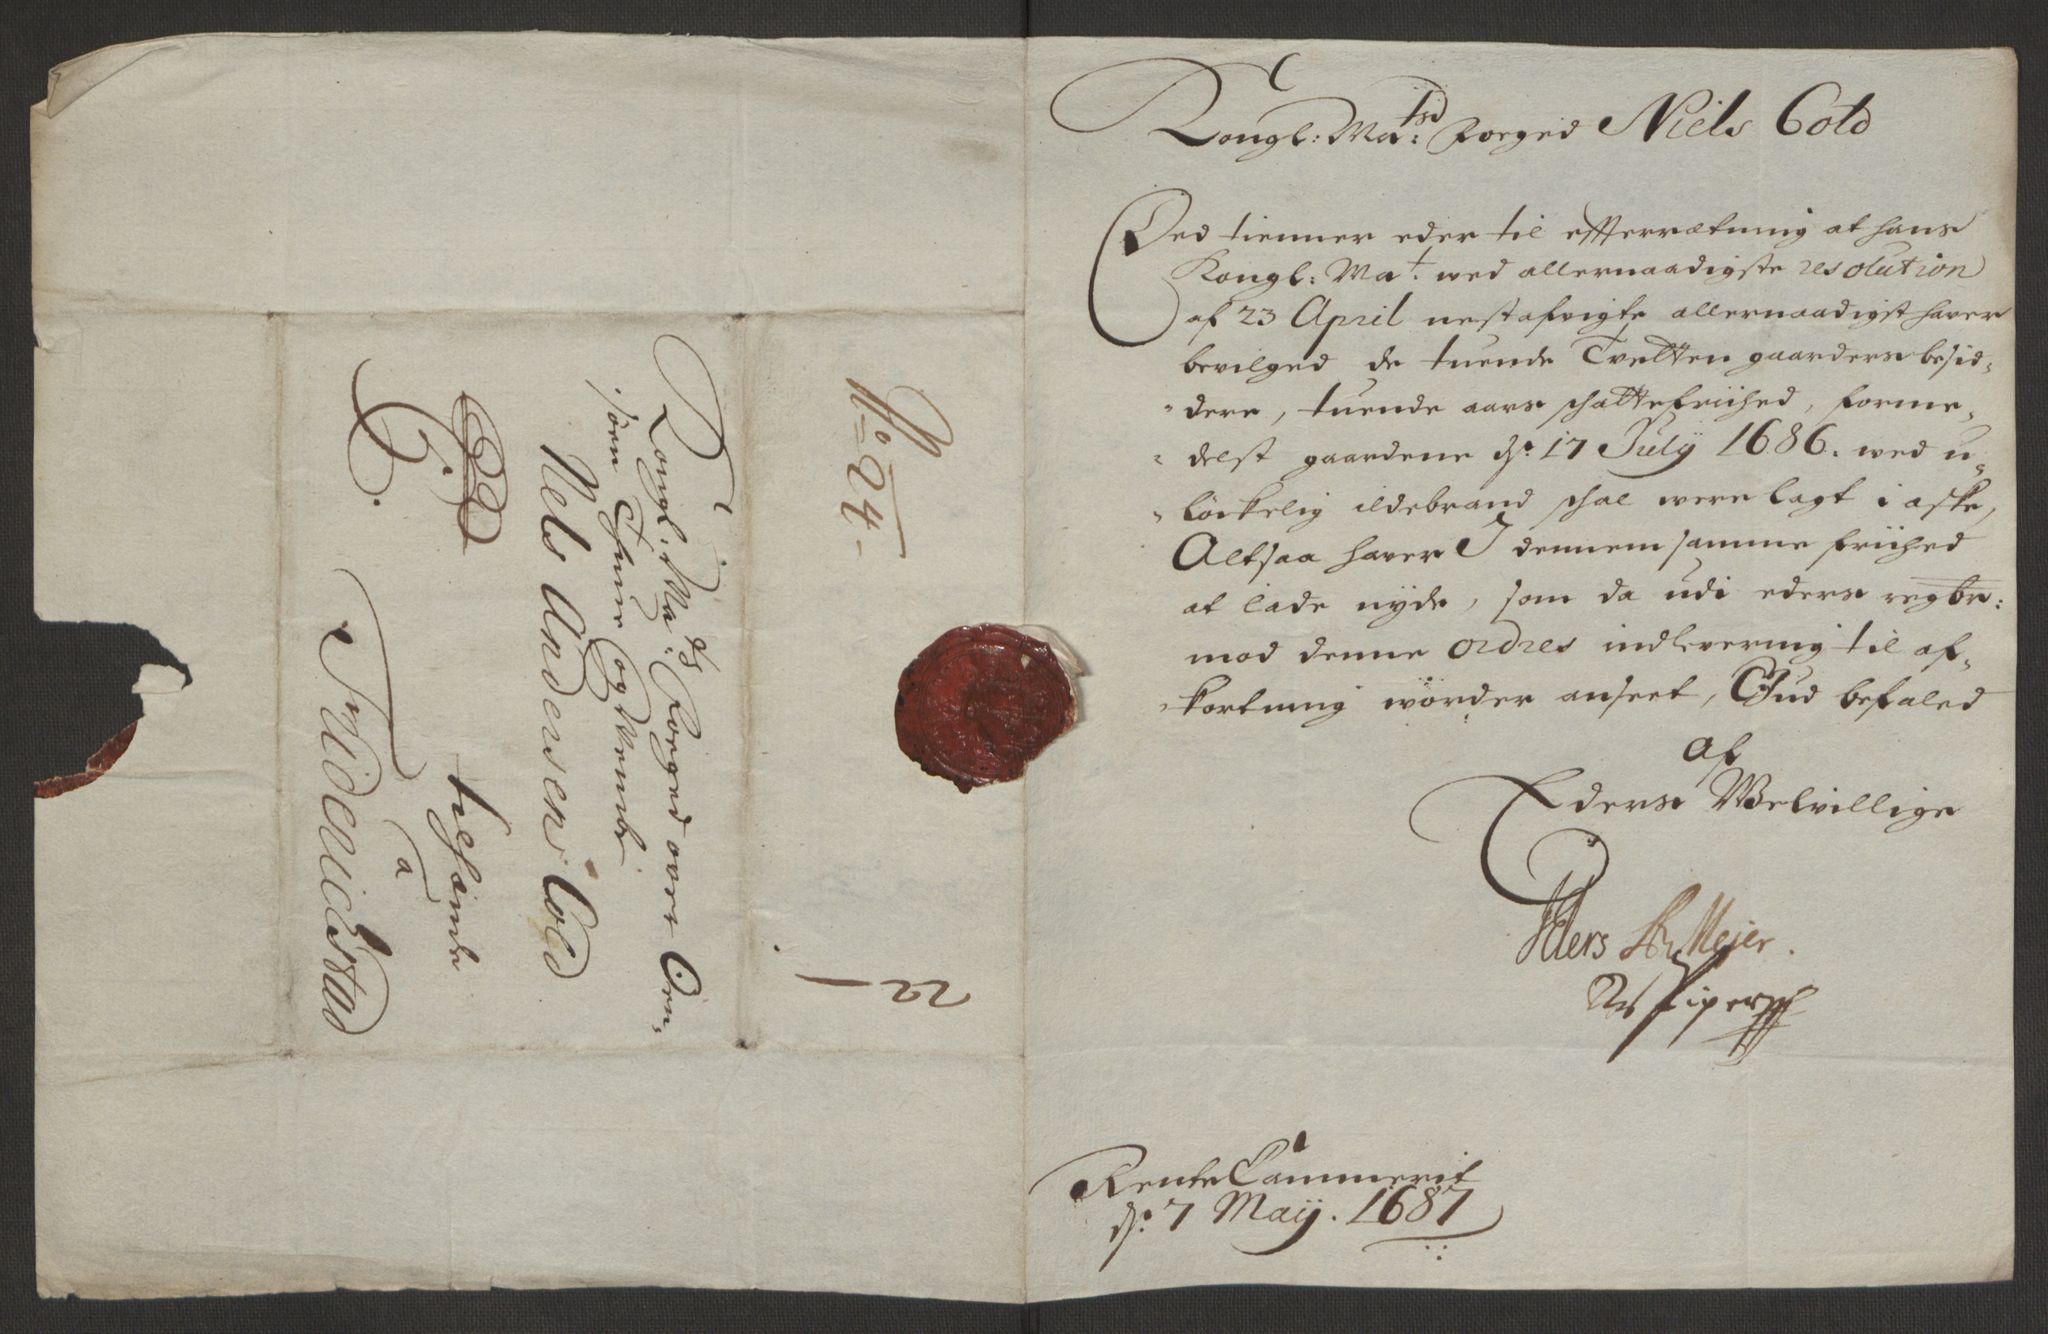 Kongl: Ma:tsd Foeged Niels Cold
Ded tienner eder til effterrætning at hans
Kongl: Mat: wed allernaadigste resolution
af 23 April nestafvigte allernaadigst haver
bevilged de tuende Tvetten gaarders besid-
dere, tuende aars schattefriihed, forme-
delst gaardene ds: 17 July 1686. wed u-
löckelig ildebrand schal were lagt i aske,
Altsaa haver I dennem samme friihed
at lade nyde, som da udi eders regbr:
mod denne ordres indlevering til af-
kortning wörder anseet, Gud befaled
Af
Eders Welvillige
Meier.
Rente Cammerit
ds: 7 May. 1687
No 24
22
Kongl: Ma:ds Foeged over
og
Nels Andersen Cold
tilhænde
a
Friderichstad